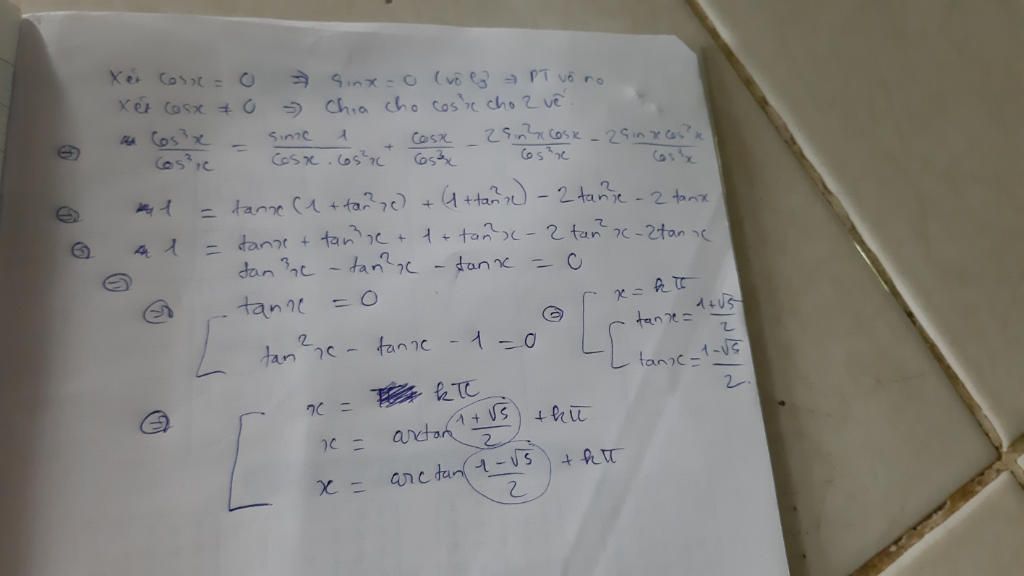 Xét cosx = 0 ⇒ sinx = 0 (vô lý) ⇒ PT vô no
Xét cosx ≠ 0 ⇒ Chia cho cos³x cho 2 vế.
⇔ cos³x/cos³x = sinx/cosx . 1/cos²x + cosx/cos³x − 2sin²x cosx/cos³x − 2 sinx cos²x/cos³x
⇔ 1 = tanx (1 + tan²x) + (1 + tan²x) − 2 tan²x − 2 tanx
⇔ 1 = tanx + tan³x + 1 + tan²x − 2 tan²x − 2tanx
⇔ tan³x − tan²x − tanx = 0
⇔ [ tanx = 0
tan²x − tanx − 1 = 0
⇔ [ x = kπ
[ tanx = (1+√5)/2
tanx = (1−√5)/2.
⇔ [ x = kπ
x = arctan (1+√5)/2 + kπ
x = arctan (1−√5)/2 + kπ